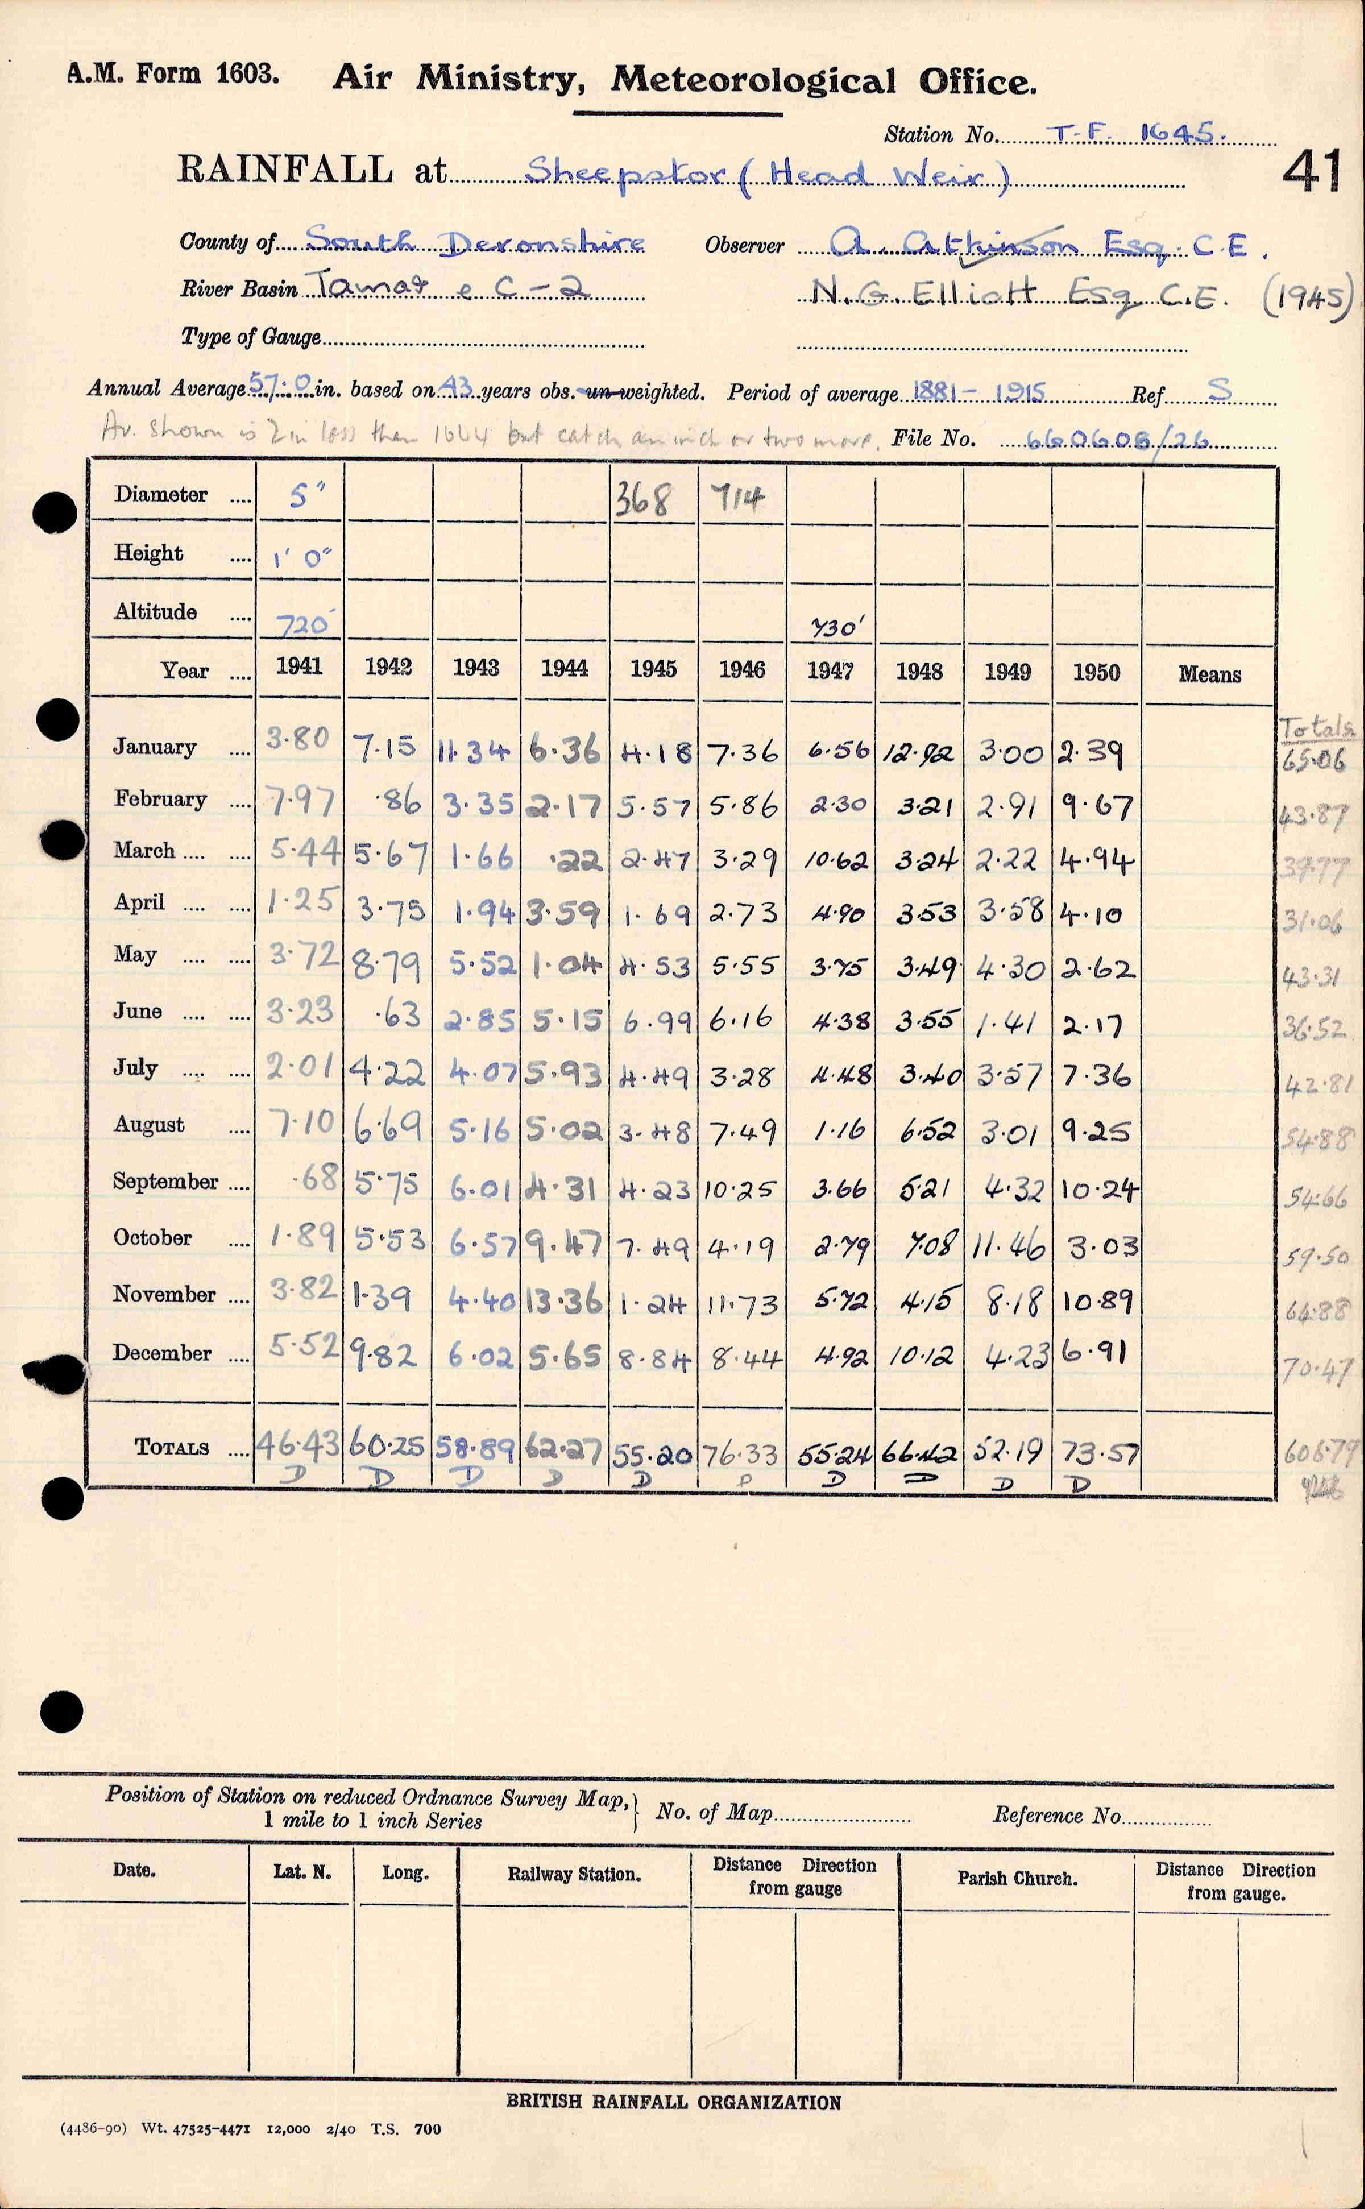 A.M. Form 1603. Air Ministry, Meteorological Office.
Station No. T.F. 1645.
RAINFALL at Sheepstor (Head Weir) 41
County of South Devonshire Observer A. Atkinson Esq. C.E.
River Basin Tamar e C-2 N.G. Elliott Esq C.E. (1945)
Type of Gauge
Annual Average 57.0 in. based on 43 years obs. un-weighted. Period of average 1881-1915 Ref S
Av. shown is 2 in less than 1664 but catch an inch or two more. File No. 660608/26
Diameter .... 5" 368 714
Height .... 1' 0"
Altitude .... 720' 730'
Year .... 1941 1942 1943 1944 1945 1946 1947 1948 1949 1950 Means
Totals
January .... 3.80 7.15 11.34 6.36 4.18 7.36 6.56 12.92 3.00 2.39 65.06
February .... 7.97 .86 3.35 2.17 5.57 5.86 2.30 3.21 2.91 9.67 43.87
March .... .... 5.44 5.67 1.66 .22 2.47 3.29 10.62 3.24 2.22 4.94 39.77
April .... .... 1.25 3.75 1.94 3.59 1.69 2.73 4.90 3.53 3.58 4.10 31.06
May .... .... 3.72 8.79 5.52 1.04 4.53 5.55 3.75 3.49 4.30 2.62 43.31
June .... .... 3.23 .63 2.85 5.15 6.99 6.16 4.38 3.55 1.41 2.17 36.52
July .... .... 2.01 4.22 4.07 5.93 4.49 3.28 4.48 3.40 3.57 7.36 42.81
August .... 7.10 6.69 5.16 5.02 3.48 7.49 1.16 6.52 3.01 9.25 54.88
September .... .68 5.75 6.01 4.31 4.23 10.25 3.66 5.21 4.32 10.24 54.66
October .... 1.89 5.53 6.57 9.47 7.49 4.19 2.79 7.08 11.46 3.03 59.50
November .... 3.82 1.39 4.40 13.36 1.24 11.73 5.72 4.15 8.18 10.89 64.88
December .... 5.52 9.82 6.02 5.65 8.84 8.44 4.92 10.12 4.23 6.91 70.47
TOTALS .... 46.43 60.25 58.89 62.27 55.20 76.33 55.24 66.42 52.19 73.57 606.79
D D D D D D D D D
Position of Station on reduced Ordnance Survey Map, 1 mile to 1 inch Series } No. of Map Reference No.
Date. Lat. N. Long. Railway Station. Distance Direction from gauge Parish Church. Distance Direction from gauge.
BRITISH RAINFALL ORGANIZATION
(4486-90) Wt. 47525-4471 12,000 2/40 T.S. 700